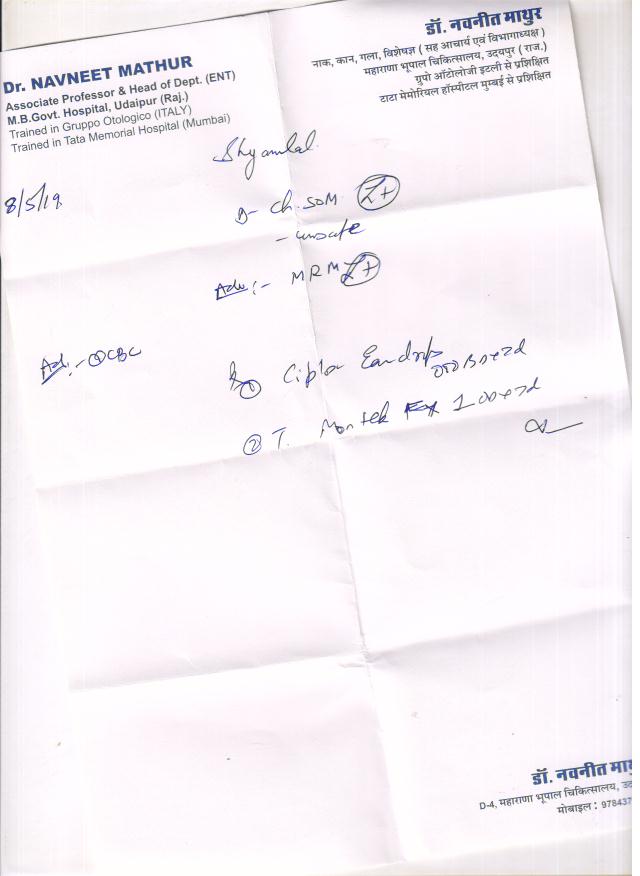 Dr. NAVNEET MATHUR
Associate Professor & Head of Dept. (ENT)
M.B.Govt. Hospital, Udaipur (Raj.)
Trained in Gruppo Otologico (ITALY)
Trained in Tata Memorial Hospital (Mumbai)
डॉ. नवनीत माथुर
नाक, कान, गला, विशेषज्ञ ( सह आचार्य एवं विभागाध्यक्ष )
महाराणा भूपाल चिकित्सालय, उदयपुर ( राज.)
ग्रुपो ऑटोलोजी इटली से प्रशिक्षित
टाटा मेमोरियल हॉस्पीटल मुम्बई से प्रशिक्षित
Shyamlal
8/5/19
D- Ch. SOM Lt
- unsafe
Adv:- MRM Lt
Adv:- ① CBC
Rx ① Ciplox Eardrops
② T. Montek 1 OD x 7d
डॉ. नवनीत
D-4, महाराणा भूपाल चिकित्सालय,
मोबाइल : 97843